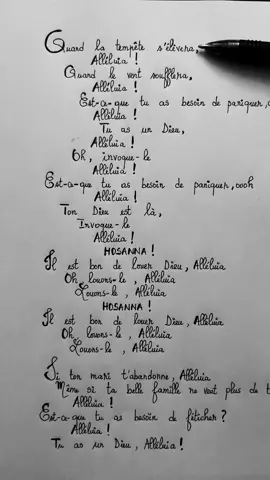 Quand la tempête s'élèvera,
Alléluia !
Quand le vent soufflera,
Alléluia !
Est-ce-que tu as besoin de paniquer,
Alléluia !
Tu as un Dieu,
Alléluia !
Oh, invoque-le
Alléluia !
Est-ce-que tu as besoin de paniquer, oooh
Alléluia !
Ton Dieu est là,
Invoque-le
Alléluia !
HOSANNA !
Il est bon de louer Dieu, Alléluia
Oh louons-le, Alléluia
Louons-le, Alléluia
HOSANNA !
Il est bon de louer Dieu, Alléluia
Oh louons-le, Alléluia
Louons-le, Alléluia
Si ton mari t'abandonne, Alléluia
Même si ta belle famille ne veut plus de t
Alléluia !
Est-ce-que tu as besoin de féticher ?
Alléluia !
Tu as un Dieu, Alléluia !